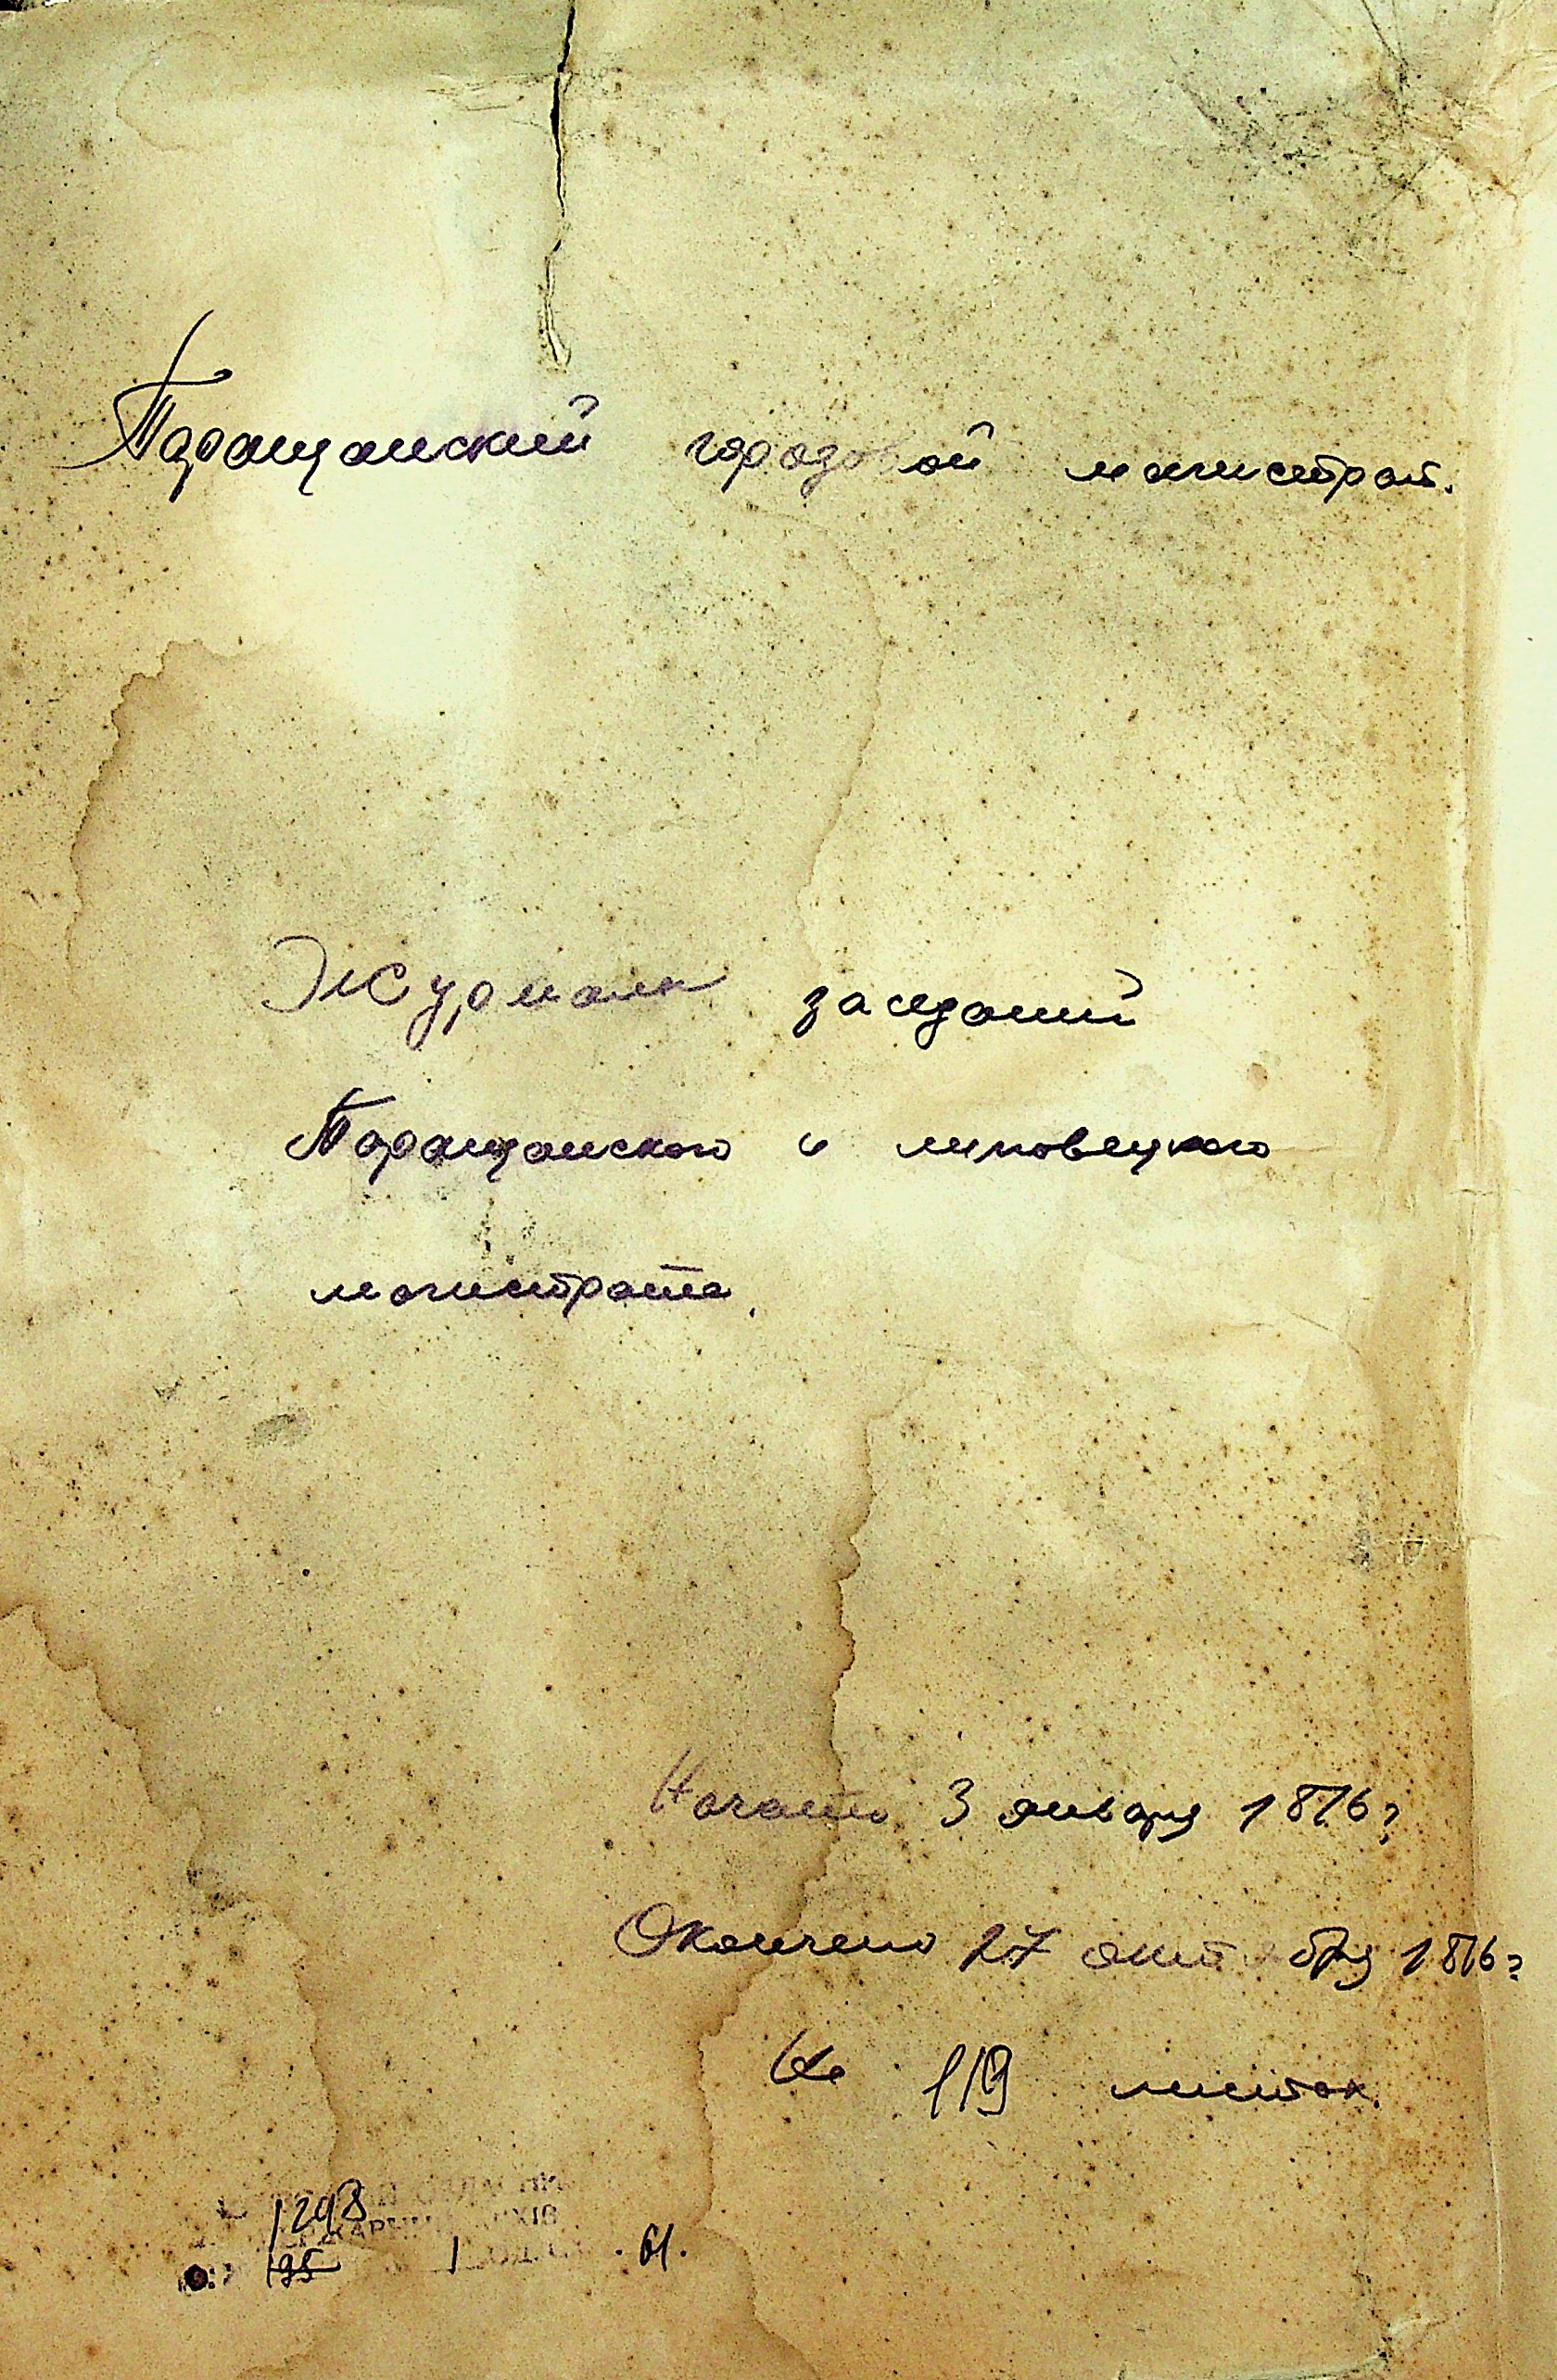 Таращанский городовой магистрат.
Журнал заседаний
Таращанского и липовецкого
магистрата.
Начато 3 января 1816 г
Окончено 27 октября 1816 г
На 119 листах.
1298
195 1 61.